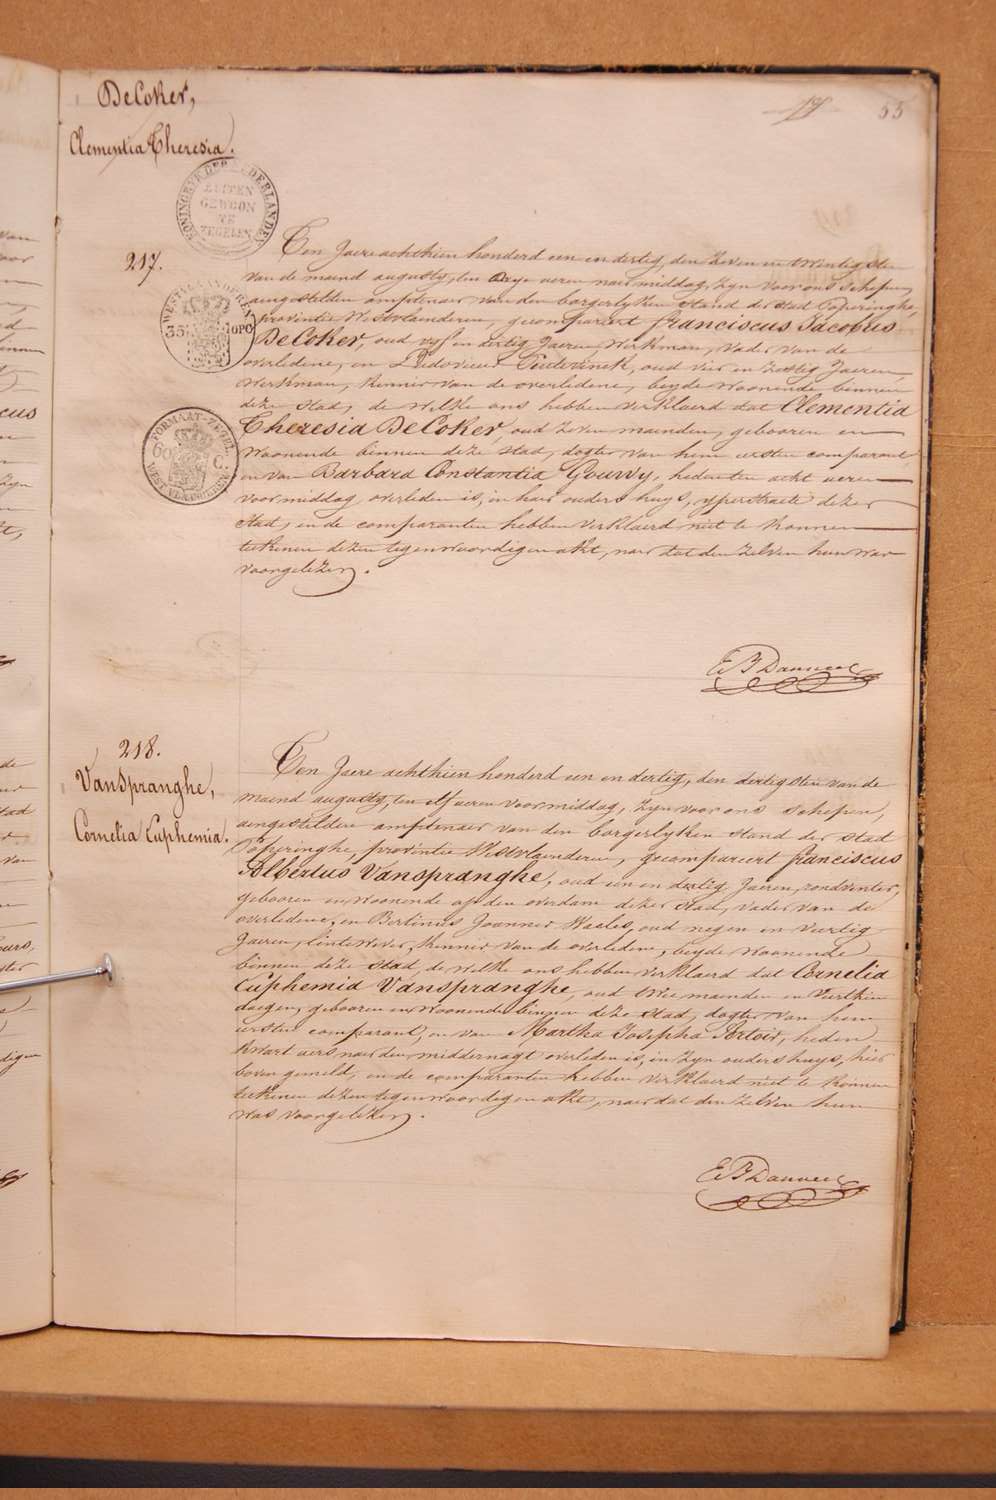 DeCoker,
Clementia Theresia.
55
KONINGRYK DER NEDERLANDEN
BUITEN
GEWOON
TE
ZEGELEN
217.
Ten Jaere achthien honderd een en dertig, den Zeven en twintigsten
van de maend augusty, ten drye ueren naermiddag, zyn voor ons schepen,
aengestelden amptenaer van den borgerlyken stand der stad Poperinghe,
provintie Westvlaenderen, gecompareert franciscus Jacobus
DeCoker, oud vyf en dertig Jaeren, Werkman, vader van de
overledene, en Ludovicus oud vier en Zestig Jaeren,
Werkman, kennis van de overledene, beyde woonende binnen
deze stad, de welke ons hebben verklaerd dat Clementia
Theresia DeCoker, oud Zeven maenden, gebooren en
woonende binnen deze stad, dogter van hem eersten comparant
en van Barbara Constantia Gouwy, heden ten acht ueren
voormiddag, overleden is, in haer ouders huys, yperstraete dezer
stad, en de comparanten hebben verklaerd niet te konnen
teekenen dezen tegenwoordigen akt, naer dat den zelven hun was
voorgelezen.
WESTVLAANDEREN
35
OPC
FORMAAT-ZEGEL
60 C.
WESTVLAANDEREN
218.
VanSpranghe,
Cornelia Euphemia.
Ten Jaere achthien honderd een en dertig, den dertigsten van de
maend augusty, ten elf ueren voormiddag, zyn voor ons schepen,
aengestelden amptenaer van den borgerlyken stand der stad
Poperinghe, provintie Westvlaenderen, gecompareert franciscus
Albertus Vanspranghe, oud een en dertig Jaeren,
gebooren en woonende op den overdam dezer stad, vader van de
overledene, en Bertinus Joannes Waeles, oud negen en veertig
Jaeren, lintewever, kennis van de overledene, beyde woonende
binnen deze stad, de welke ons hebben verklaerd dat Cornelia
Euphemia Vanspranghe, oud twee maenden en veerthien
daegen, gebooren en woonende binnen deze stad, dogter van hem
eersten comparant, en van Martha Josepha heden
kwart uers naer den middernagt overleden is, in zyn ouders huys, hier
boven gemeld, en de comparanten hebben verklaerd niet te konnen
teekenen dezen tegenwoordigen akt, naer dat den zelven hun
was voorgelezen.